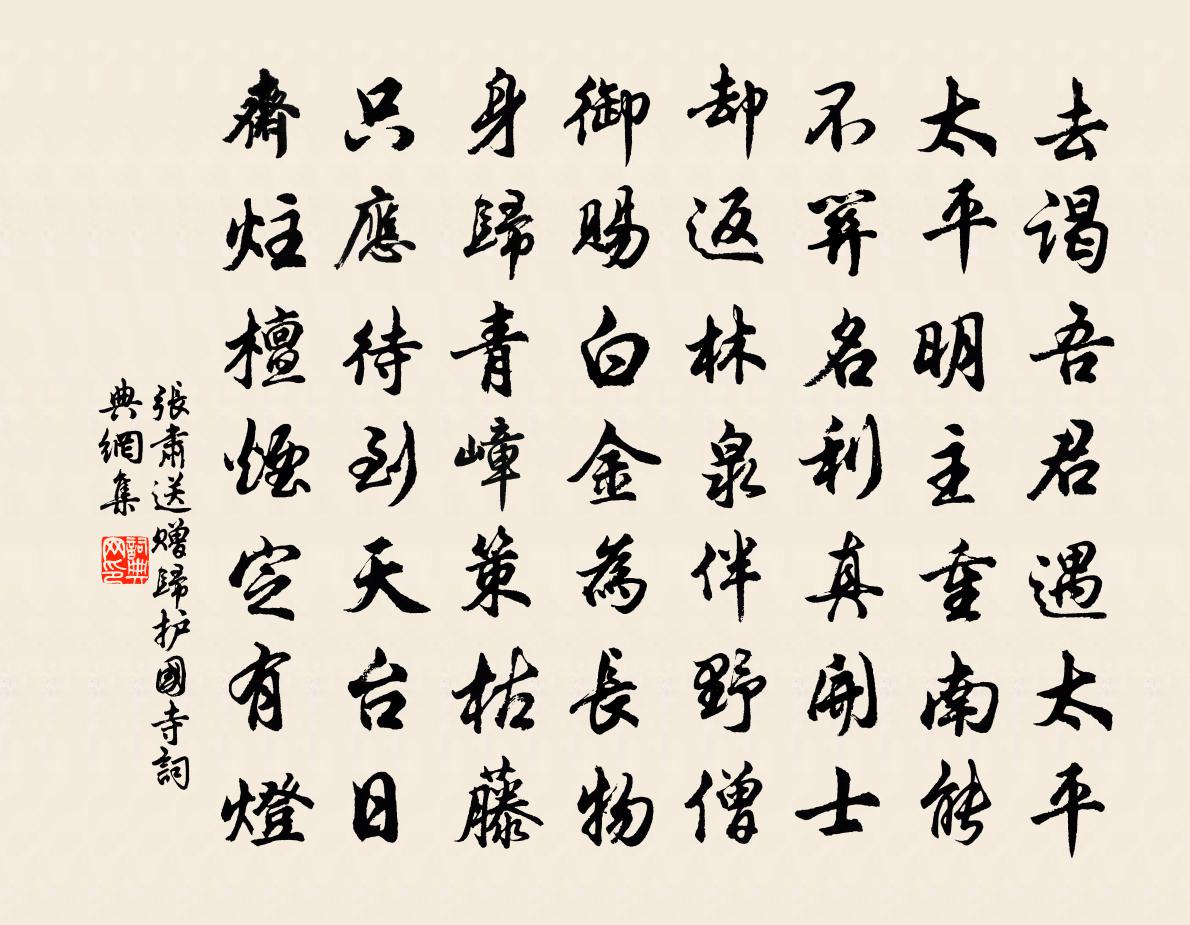 去謁吾君遇太平
太平明主重南能
不羿名利真開士
却返林泉伴野僧
御賜白金為長物
身歸青嶂策枯藤
只應待到天台日
齋炷檀煙定有燈
張肅送赠歸护國寺詞
典網集
詞典网印